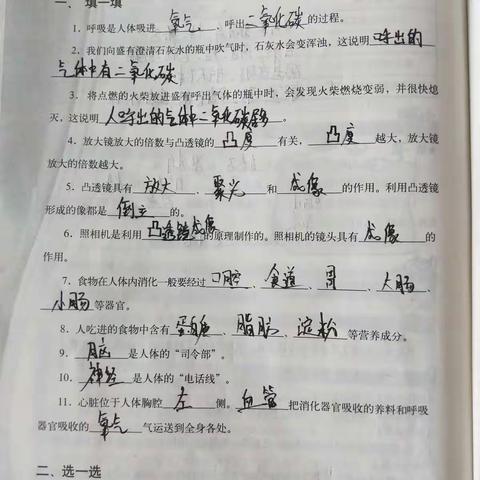 一、填一填
1. 呼吸是人体吸进 氧气 、呼出 二氧化碳 的过程。
2. 我们向盛有澄清石灰水的瓶中吹气时，石灰水会变浑浊，这说明 呼出的
气体中有二氧化碳 。
3. 将点燃的火柴放进盛有呼出气体的瓶中时，会发现火柴燃烧变弱，并很快熄
灭，这说明 人呼出的气体中二氧化碳多 。
4. 放大镜放大的倍数与凸透镜的 凸度 有关， 凸度 越大，放大镜
放大的倍数越大。
5. 凸透镜具有 放大 、 聚光 和 成像 的作用。利用凸透镜
形成的像都是 倒立 的。
6. 照相机是利用 凸透镜成像 的原理制作的。照相机的镜头具有 成像 的
作用。
7. 食物在人体内消化一般要经过 口腔 、 食道 、 胃 、 大肠 、
小肠 等器官。
8. 人吃进的食物中含有 蛋白质 、 脂肪 、 淀粉 等营养成分。
9. 脑 是人体的“司令部”。
10. 神经 是人体的“电话线”。
11. 心脏位于人体胸腔 左 侧。 血管 把消化器官吸收的养料和呼吸
器官吸收的 氧气 气运送到全身各处。
二、选一选